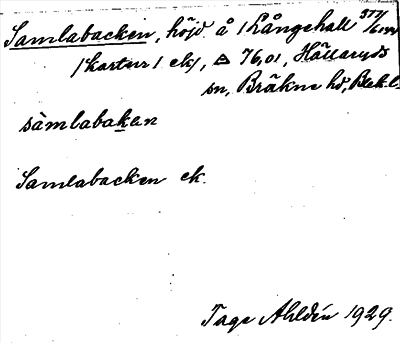 Samlabacken, höjd å 1 Långehall 377/6 m
/kartur/ ek/, △ 76,01, Hällaryds
sn, Bräkne hd, Blek. l.
sàmlabakan
Samlabacken ek.
Tage Ahldén 1929.